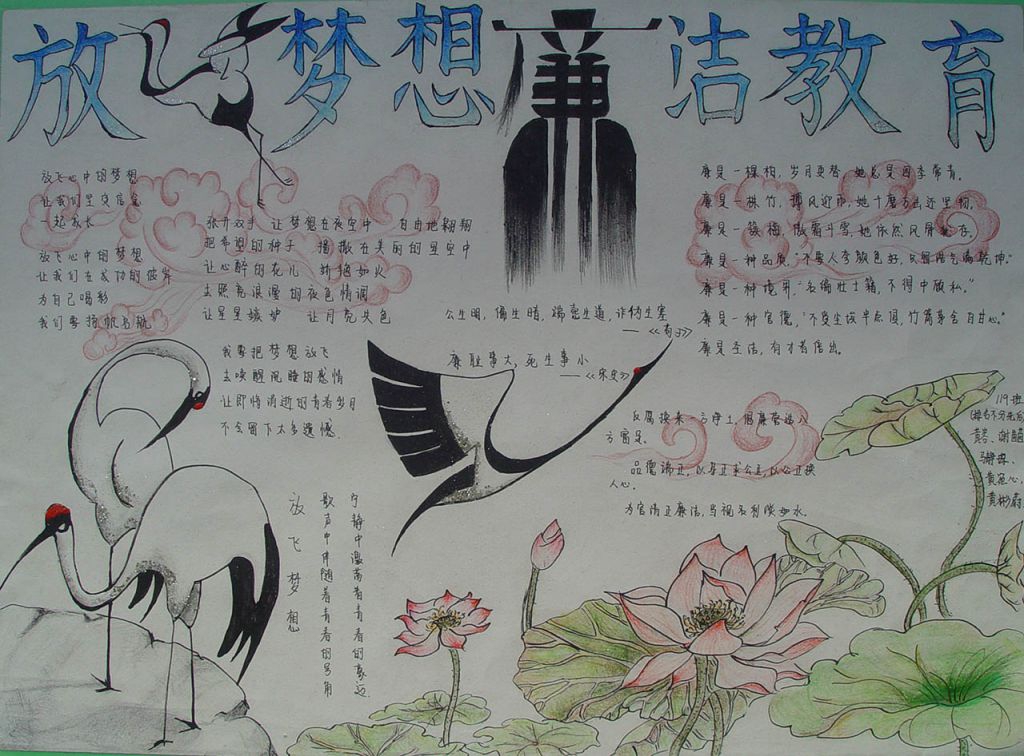 放 梦想 廉洁教育
放飞心中的梦想
让我们坚定信念
一起成长
放飞心中的梦想
让我们在成功的彼岸
为自己喝彩
我们要扬帆启航
张开双手 让梦想在夜空中 自由地翱翔
把希望的种子 播撒在美丽的星空中
让心醉的花儿 娇艳如火
去照亮浪漫的夜色情调
让星星嫉妒 让月亮失色
我要把梦想放飞
去唤醒沉睡的感情
让即将消逝的青春岁月
不会留下太多遗憾.
放飞梦想
宁静中激荡着青春的豪迈
歌声中伴随着青春的号角
公生明,偏生暗,端悫生通,诈伪生塞
——《荀子》
廉耻事大,死生事小
——《宋史》
廉是一棵柏,岁月更替,她总是四季常青。
廉是一株竹,挪风迎雨,她十磨万击还坚韧,
廉是一簇梅,傲霜斗雪,她依然风骨犹存。
廉是一种品质,"不要人夸颜色好,只留清气满乾坤。"
廉是一种境界,"名编壮士籍,不得中顾私。"
廉是一种官德,
廉是圣洁,有才者信出。
反腐换来一方净土,倡廉营造八
方富足。
品德端正,以身正求公正,以公正换
人心。
为官清正廉洁,当视名利淡如水。
119班
(排名不分先后)
黄